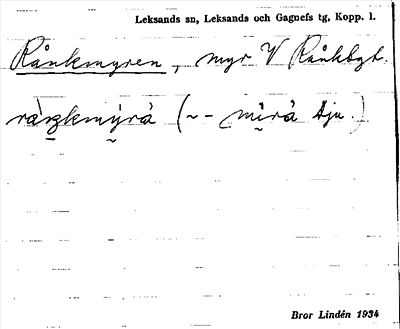 Leksands sn, Leksands och Gagnefs tg, Kopp. l.
Rånkmyren, myr V Rånkbgt.
(~ - Aju.)
Bror Lindén 1934